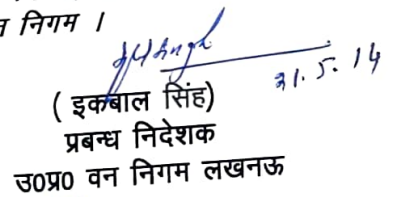 निगम ।
31.5.14
( इकबाल सिंह)
प्रबन्ध निदेशक
उ०प्र० वन निगम लखनऊ